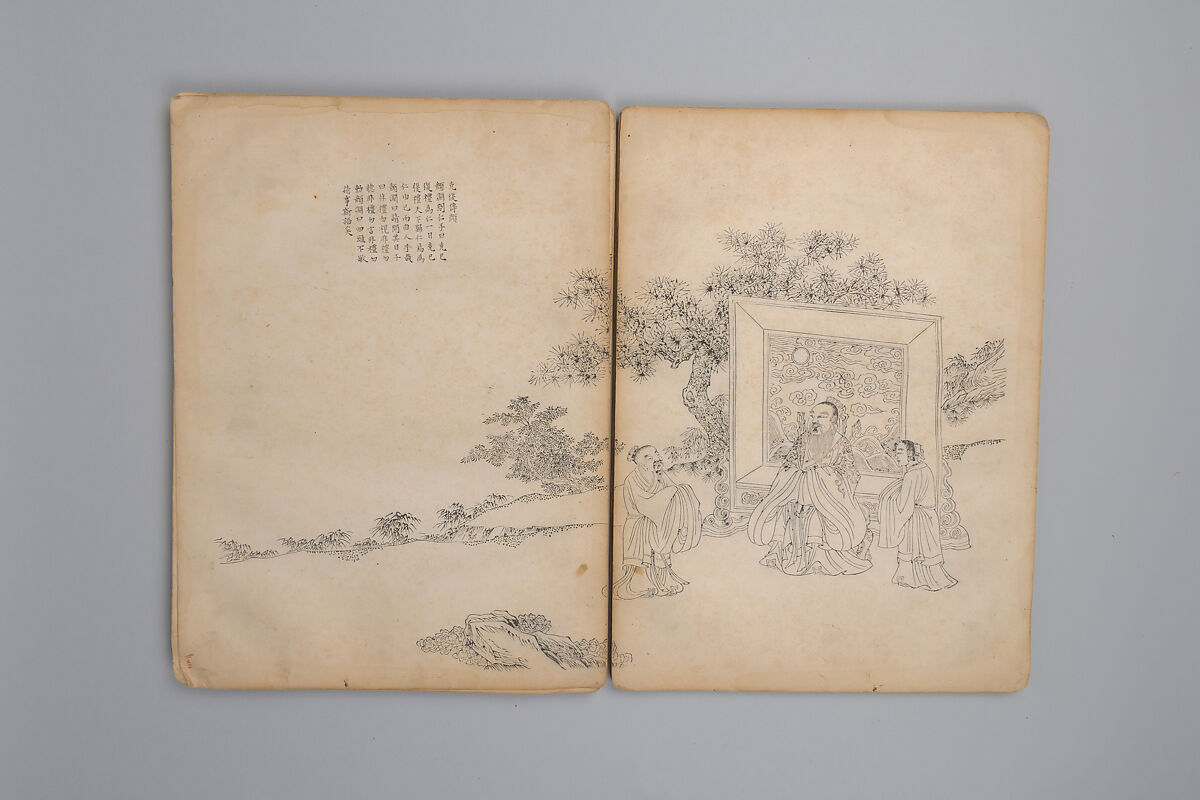 克復傳顏
顏淵問仁子曰克己
復禮為仁一日克己
復禮天下歸仁焉為
仁由己而由人乎哉
顏淵曰請問其目子
曰非禮勿視非禮勿
聽非禮勿言非禮勿
動顏淵曰回雖不敏
請事斯語矣